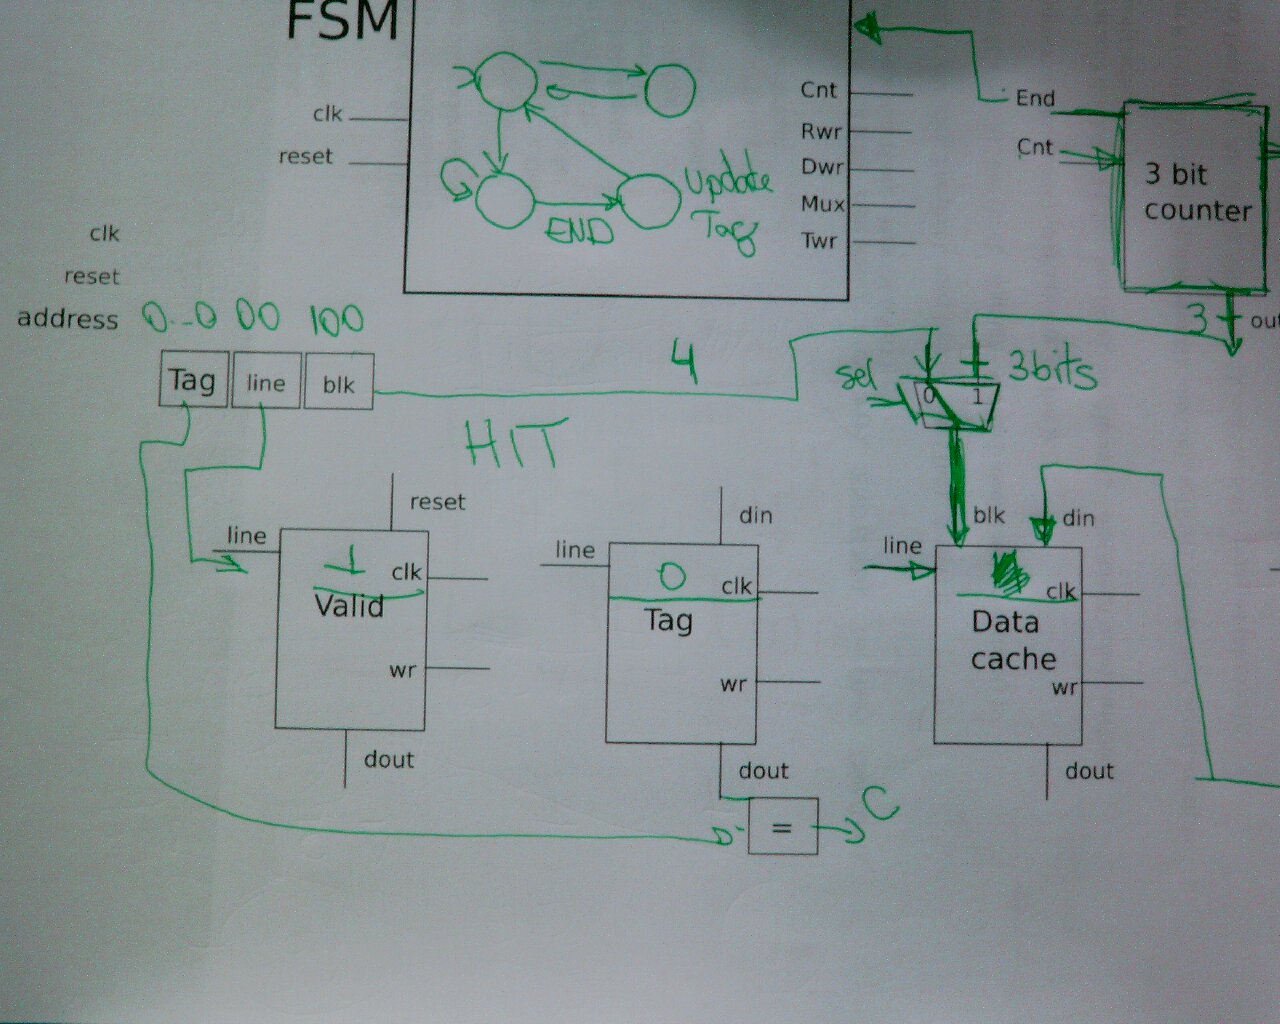 FSM
clk
reset
Update
Tag
END
Cnt
Rwr
Dwr
Mux
Twr
End
Cnt
3 bit
counter
3
clk
reset
address 0...0 00 100
Tag line blk
4
sel
0 1
3bits
HIT
reset
line
1
clk
Valid
wr
dout
din
line
0
clk
Tag
wr
dout
= C
blk
din
line
clk
Data
cache
wr
dout